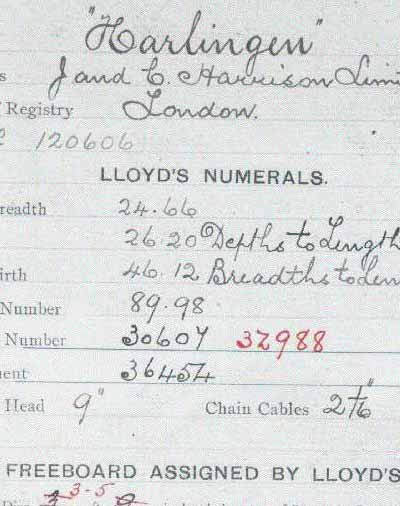 "Harlingen"
s J and C. Harrison Limi
Registry London.
120606
LLOYD'S NUMERALS.
readth 24.66
26.20 Depths to Length
irth 46.12 Breadths to Len
Number 89.98
Number 30607 32988
ent 36454
Head 9" Chain Cables 2 1/16"
FREEBOARD ASSIGNED BY LLOYD'S
3-5